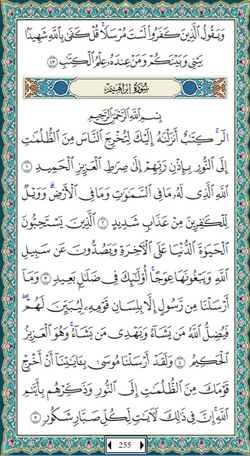 وَيَقُولُ ٱلَّذِينَ كَفَرُوا۟ لَسْتَ مُرْسَلًا ۚ قُلْ كَفَىٰ بِٱللَّهِ شَهِيدًۢا
بَيْنِى وَبَيْنَكُمْ وَمَنْ عِندَهُۥ عِلْمُ ٱلْكِتَـٰبِ ٤٣
سُورَةُ إِبْرَاهِيمَ
بِسْمِ ٱللَّهِ ٱلرَّحْمَـٰنِ ٱلرَّحِيمِ
الٓر ۚ كِتَـٰبٌ أَنزَلْنَـٰهُ إِلَيْكَ لِتُخْرِجَ ٱلنَّاسَ مِنَ ٱلظُّلُمَـٰتِ
إِلَى ٱلنُّورِ بِإِذْنِ رَبِّهِمْ إِلَىٰ صِرَٰطِ ٱلْعَزِيزِ ٱلْحَمِيدِ ١
ٱللَّهِ ٱلَّذِى لَهُۥ مَا فِى ٱلسَّمَـٰوَٰتِ وَمَا فِى ٱلْأَرْضِ ۗ وَوَيْلٌ
لِّلْكَـٰفِرِينَ مِنْ عَذَابٍ شَدِيدٍ ٢ ٱلَّذِينَ يَسْتَحِبُّونَ
ٱلْحَيَوٰةَ ٱلدُّنْيَا عَلَى ٱلْـَٔاخِرَةِ وَيَصُدُّونَ عَن سَبِيلِ
ٱللَّهِ وَيَبْغُونَهَا عِوَجًا ۚ أُو۟لَـٰٓئِكَ فِى ضَلَـٰلٍۭ بَعِيدٍ ٣ وَمَآ
أَرْسَلْنَا مِن رَّسُولٍ إِلَّا بِلِسَانِ قَوْمِهِۦ لِيُبَيِّنَ لَهُمْ ۖ
فَيُضِلُّ ٱللَّهُ مَن يَشَآءُ وَيَهْدِى مَن يَشَآءُ ۚ وَهُوَ ٱلْعَزِيزُ
ٱلْحَكِيمُ ٤ وَلَقَدْ أَرْسَلْنَا مُوسَىٰ بِـَٔايَـٰتِنَآ أَنْ أَخْرِجْ
قَوْمَكَ مِنَ ٱلظُّلُمَـٰتِ إِلَى ٱلنُّورِ وَذَكِّرْهُم بِأَيَّىٰمِ
ٱللَّهِ ۚ إِنَّ فِى ذَٰلِكَ لَـَٔايَـٰتٍ لِّكُلِّ صَبَّارٍ شَكُورٍ ٥
255